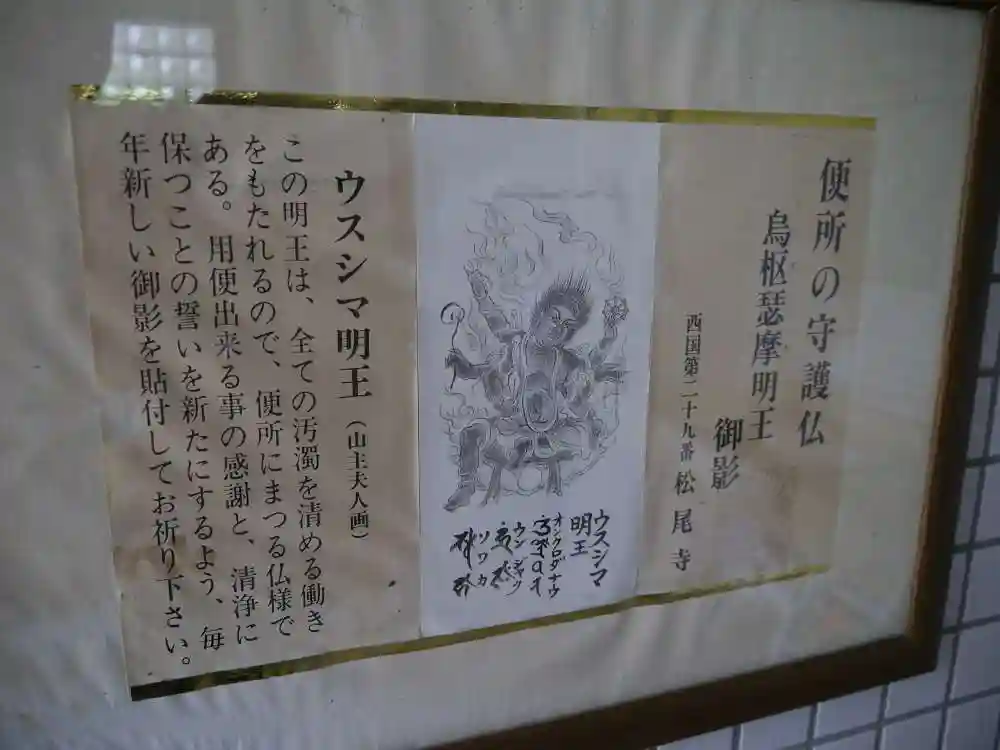 便所の守護仏
烏枢瑟摩明王
御影
西国第二十九番 松尾寺
ウスシマ
明王
オンクロダナウ
ウンジャク
ソワカ
ウスシマ明王（山主夫人画）
この明王は、全ての汚濁を清める働き
をもたれるので、便所にまつる仏様で
ある。用便出来る事の感謝と、清浄に
保つことの誓いを新たにするよう、毎
年新しい御影を貼付してお祈り下さい。